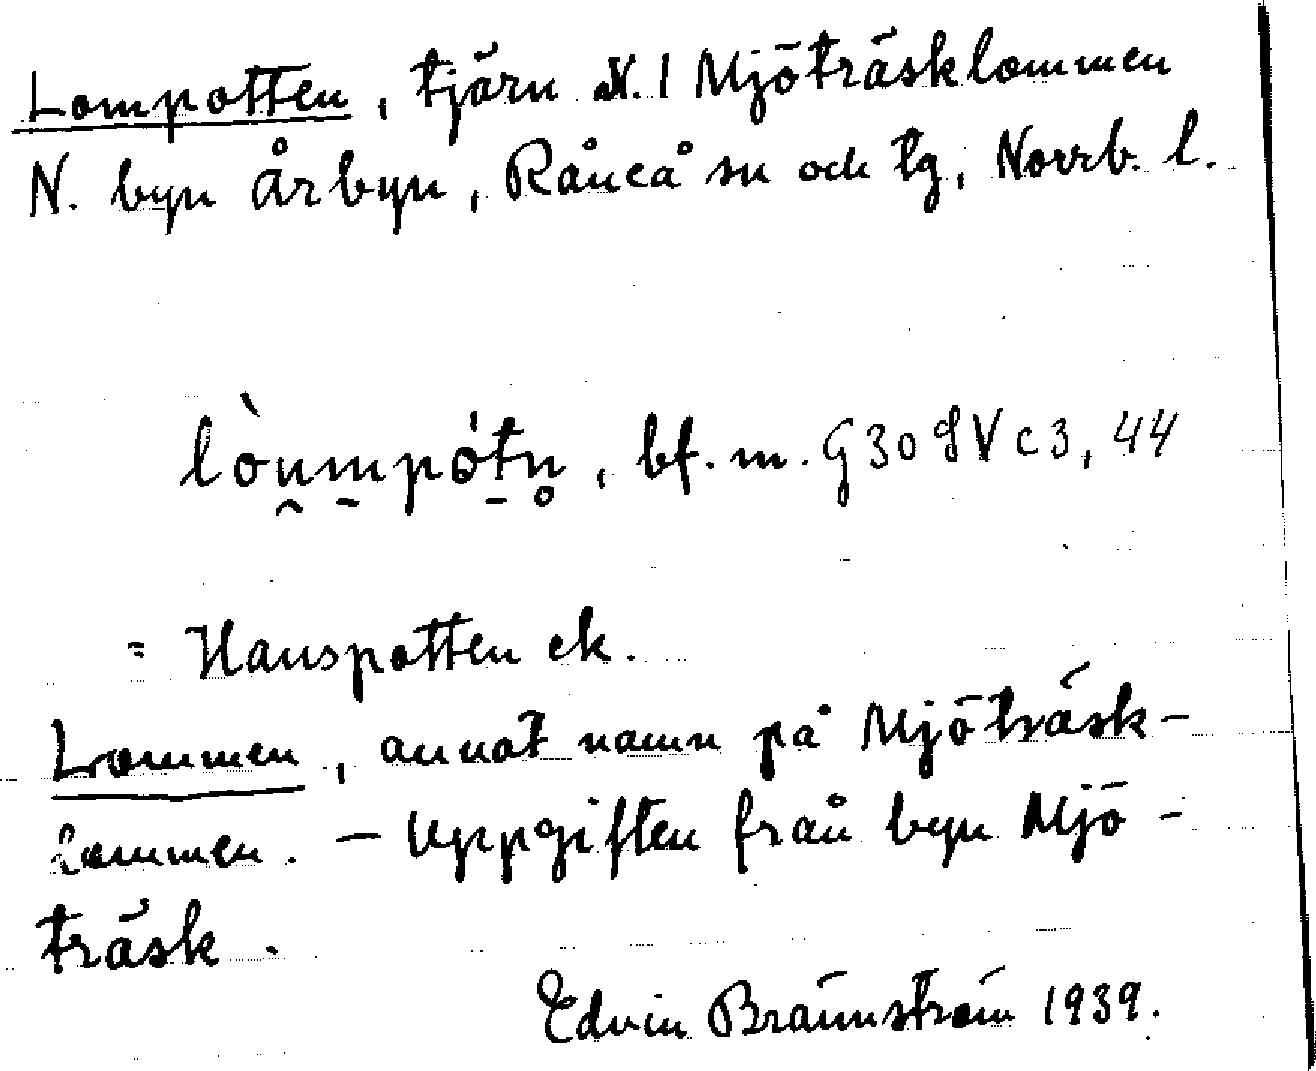 Lompotten, tjärn N. l Mjöträsklommen
N. byn Årbyn, Råneå sn och tg, Norrb. l.
lòu̯m̱pót̠n̥, bf. m. G30 9Vc3, 44
= Hanspotten ek.
Lommen, annat namn på Mjöträsk-
lommen. - Uppgiften från byn Mjö-
träsk.
Edvin Brännström 1939.